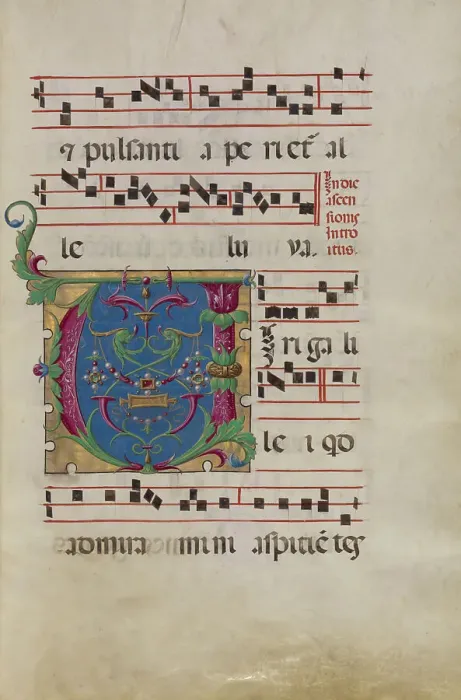 ⁊ pulsanti a pe ri et᷑ al
le lu ya.
In die
ascen
sionis
Intro
itus.
V I ri ga li
le i qd
admira mi ni aspiciẽ tes